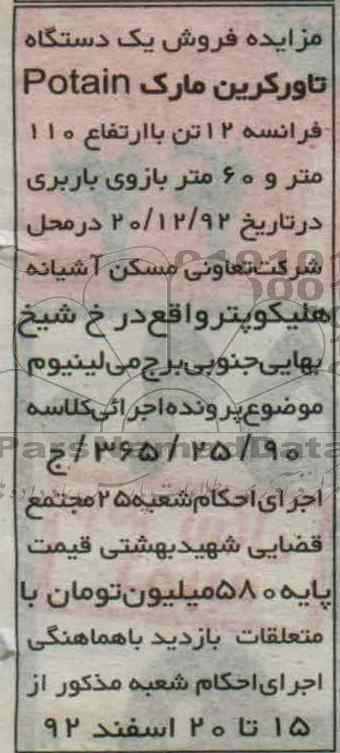 مزایده فروش یک دستگاه
تاورکرین مارک Potain
فرانسه ۱۲تن باارتفاع ۱۱۰
متر و ۶۰ متر بازوی باربری
درتاریخ ۲۰/۱۲/۹۲ درمحل
شرکت‌تعاونی مسکن آشیانه
هلیکوپتر واقع در خ شیخ
بهایی‌جنوبی‌برج‌می‌لینیوم
موضوع‌پرونده‌اجرائی‌کلاسه
۹۰/۲۵/۳۶۵/ج
ParsNamadData
اجرای‌احکام‌شعبه۲۵مجتمع
قضایی شهیدبهشتی قیمت
پایه۵۸۰میلیون‌تومان با
متعلقات بازدید باهماهنگی
اجرای‌احکام شعبه مذکور از
۱۵ تا ۲۰ اسفند ۹۲